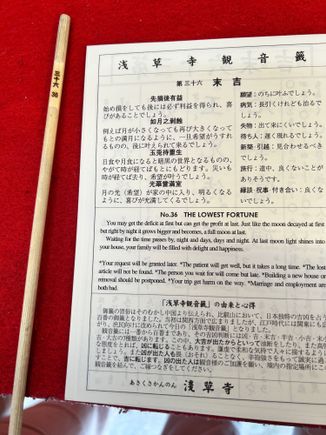 三十六 36
浅草寺観音籤
第三十六 末吉
先損後有益
始め損をしても後には必ず利益を得られ、喜びがあることでしょう。
如月之剥蝕
例えば月が小さくなっても再び大きくなってもとの満月になるように、一旦希望がうすれるものの、後に叶えられて来るでしょう。
玉兎待重生
日食や月食になると暗黒の世界となるものの、やがて時が経てばもとにもどります。災いも時が経てば去り、希望が叶うでしょう。
光華當満室
月の光(希望)が家の中に入り、明るくなるように、喜びが充満してくるでしょう。
願望:のちに叶うでしょう。
病気:長引くけれども治るでしょう。
失物:出て来にくいでしょう。
待ち人:遅く現れるでしょう。
新築・引越:見合わせるべきでしょう。
旅行:道中、良くないことがありそうです。
縁談・祝事・付き合い:良くないでしょう。
No.36 THE LOWEST FORTUNE
You may get the deficit at first but can get the profit at last. Just like the moon decayed at first
but night by night it grows bigger and becomes, a full moon at last.
Waiting for the time passes by, night and days, days and night. At last moon light shines into
your house, your family will be filled with delight and happiness.
*Your request will be granted later. *The patient will get well, but it takes a long time. *The lost
article will not be found. *The person you wait for will come but late. *Building a new house or
removal should be postponed. *Your trip get harm on the way. *Marriage and employment are
both bad.
「浅草寺観音籤」の由来と心得
あさくさかんのん 浅草寺